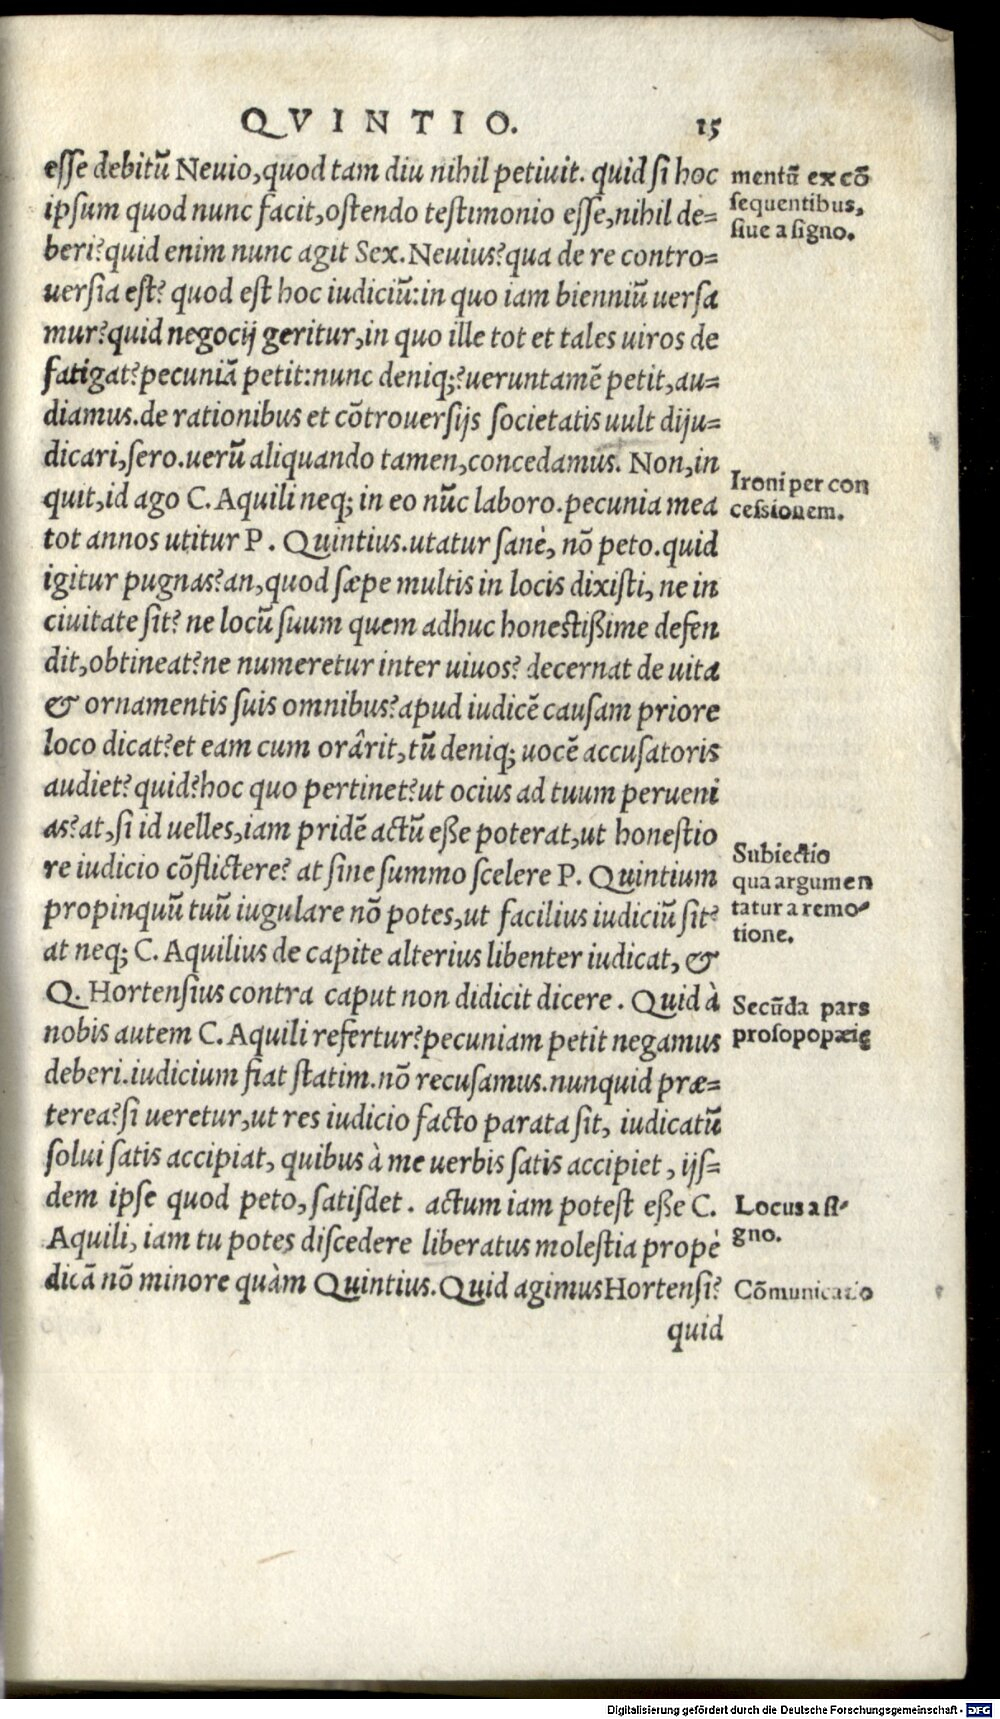 QVINTIO. 15
esse debitū Neuio,quod tam diu nihil petiuit. quid si hoc
ipsum quod nunc facit,ostendo testimonio esse,nihil de=
beri?quid enim nunc agit Sex. Neuius?qua de re contro=
uersia est? quod est hoc iudiciū:in quo iam bienniū uersa
mur?quid negocij geritur,in quo ille tot et tales uiros de
fatigat?pecuniā petit:nunc deniq;?ueruntamē petit,au=
diamus.de rationibus et cōtrouersijs societatis uult diju=
dicari,sero.uerū aliquando tamen,concedamus. Non,in
quit,id ago C. Aquili neq; in eo nūc laboro.pecunia mea
tot annos utitur P. Quintius.utatur sanè, nō peto.quid
igitur pugnas?an,quod sæpe multis in locis dixisti, ne in
ciuitate sit? ne locū suum quem adhuc honestißime defen
dit,obtineat?ne numeretur inter uiuos? decernat de uita
& ornamentis suis omnibus?apud iudicē causam priore
loco dicat?et eam cum orârit,tū deniq; uocē accusatoris
audiet? quid?hoc quo pertinet?ut ocius ad tuum perueni
as?at,si id uelles,iam pridē actū eße poterat,ut honestio
re iudicio cōflictere? at sine summo scelere P. Quintium
propinquū tuū iugulare nō potes,ut facilius iudiciū sit?
at neq; C. Aquilius de capite alterius libenter iudicat, &
Q. Hortensius contra caput non didicit dicere. Quid à
nobis autem C. Aquili refertur?pecuniam petit negamus
deberi.iudicium fiat statim.nō recusamus.nunquid præ=
terea?si ueretur,ut res iudicio facto parata sit, iudicatū
solui satis accipiat, quibus à me uerbis satis accipiet, ijs=
dem ipse quod peto, satisdet. actum iam potest eße C.
Aquili, iam tu potes discedere liberatus molestia propè
dicā nō minore quàm Quintius. Quid agimus Hortensi?
quid
mentū ex cō
sequentibus,
siue a signo.
Ironi per con
cessionem.
Subiectio
qua argumen
tatur a remo=
tione.
Secūda pars
prosopopæię
Locus a si=
gno.
Cōmunicatio
Digitalisierung gefördert durch die Deutsche Forschungsgemeinschaft - DFG